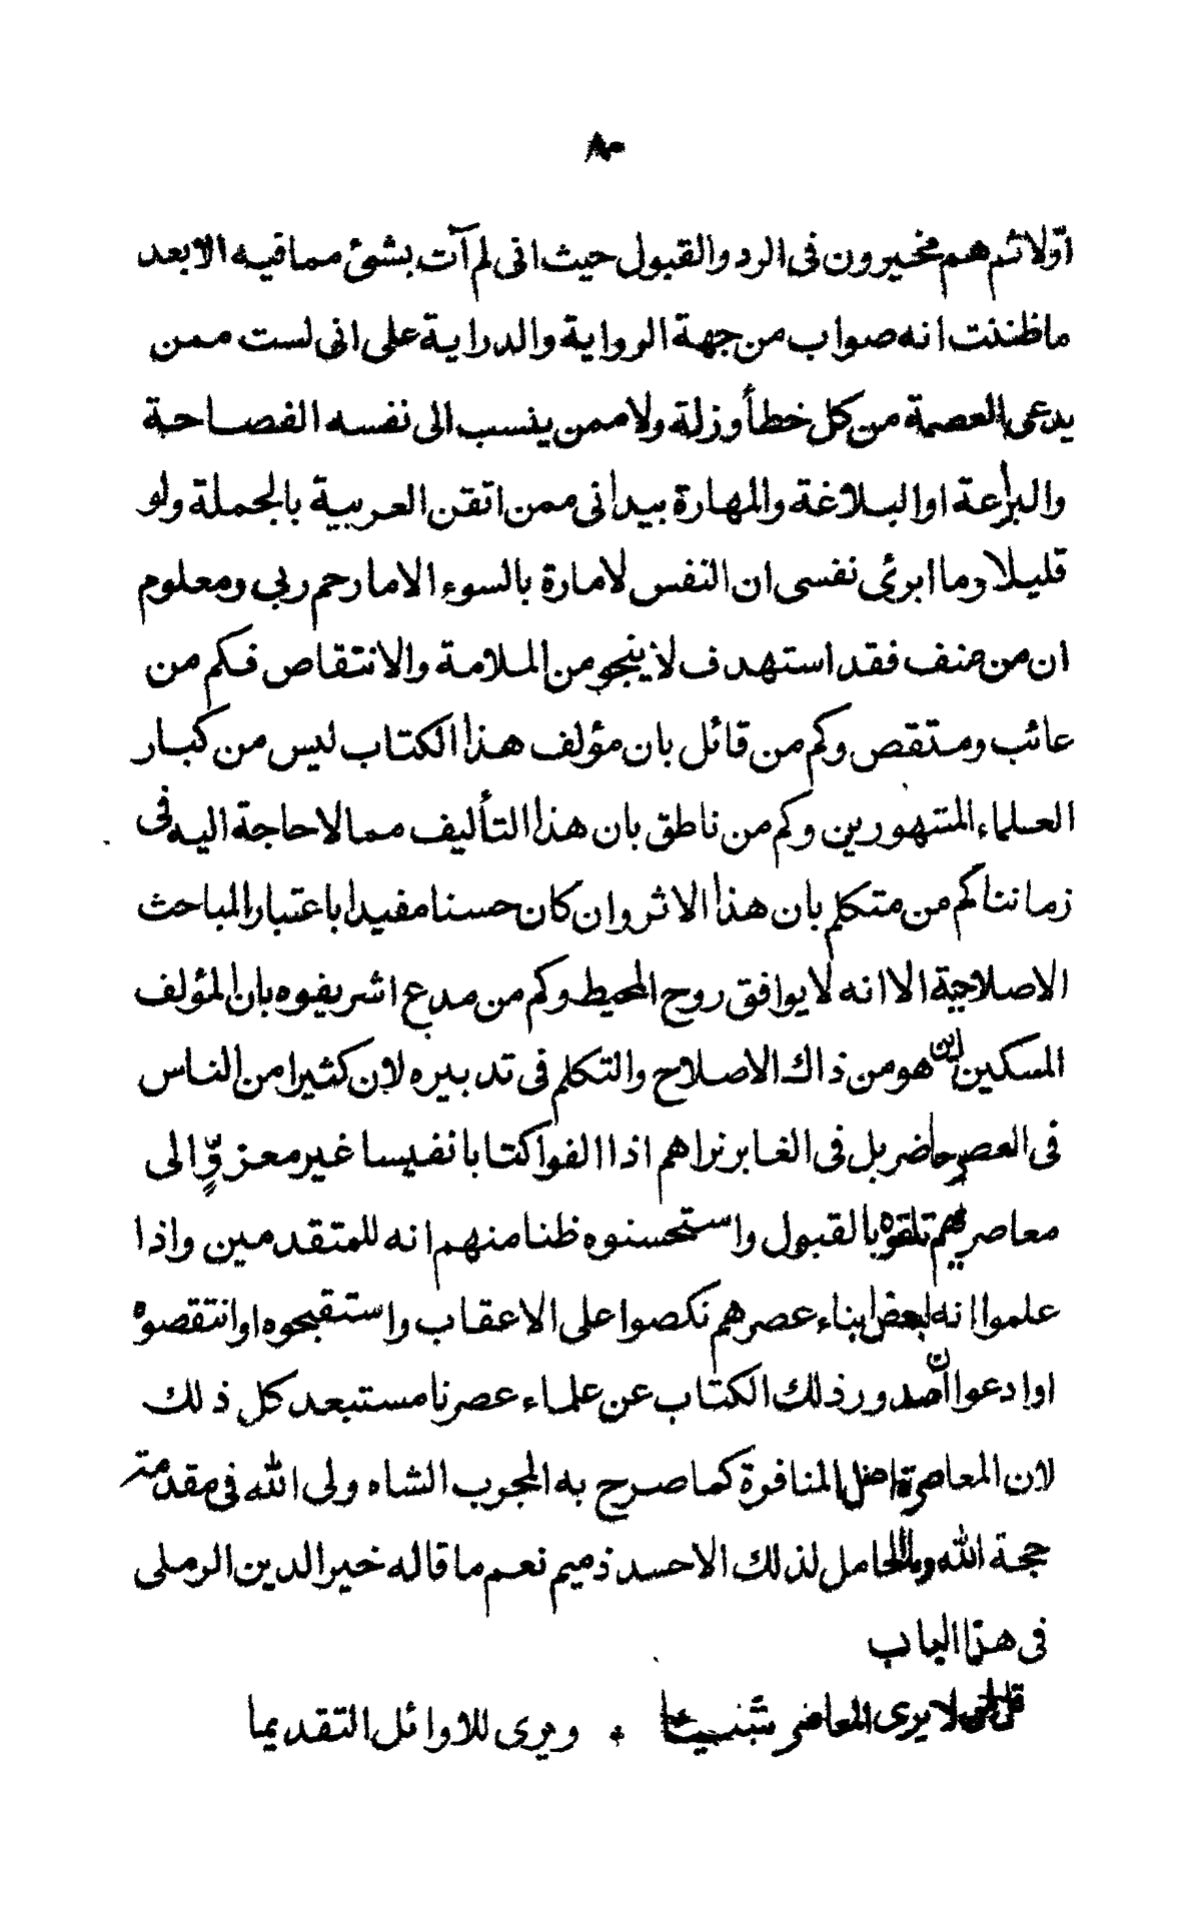 ٨٠
اوّلا ثم هم مخيرون فى الرد والقبول حيث انى لم آت بشئ مما فيه الا بعد
ما ظننت انه صواب من جهة الرواية والدراية على انى لست ممن
يدعى العصمة من كل خطأ وزلة ولا ممن ينسب الى نفسه الفصاحة
والبراعة او البلاغة والمهارة بيد انى ممن اتقن العربية بالجملة ولو
قليلا وما ابرئى نفسى ان النفس لامارة بالسوء الا ما رحم ربى ومعلوم
ان من صنف فقد استهدف لا ينجو من الملامة والانتقاص فكم من
عائب ومتقص وكم من قائل بان مؤلف هذا الكتاب ليس من كبار
العلماء المشهورين وكم من ناطق بان هذا التأليف مما لا حاجة اليه فى
زماننا كم من متكلم بان هذا الاثر وان كان حسنا مفيدا باعتبار المباحث
الاصلاحية الا انه لا يوافق روح المحيط وكم من مدع اشر يفوه بان المؤلف
المسكين اين هو من ذاك الاصلاح والتكلم فى تدبيره لان كثيرا من الناس
فى العصر حاضر بل فى الغابر نراهم اذا الفوا كتابا نفيسا غير معزوٍّ الى
معاصريهم تلقوه بالقبول واستحسنوه ظنا منهم انه للمتقدمين واذا
علموا انه لبعض ابناء عصرهم نكصوا على الاعقاب واستقبحوه او انتقصوه
او ادعوا ان صدور ذلك الكتاب عن علماء عصرنا مستبعد كل ذلك
لان المعاصرة اصل المنافرة كما صرح به المجوب الشاه ولى الله فى مقدمته
حجة الله وما الحامل لذلك الا حسد ذميم نعم ما قاله خير الدين الرملى
فى هذا الباب
قل لمن لا يرى المعاصر شيئا ٭ ويرى للاوائل التقديما